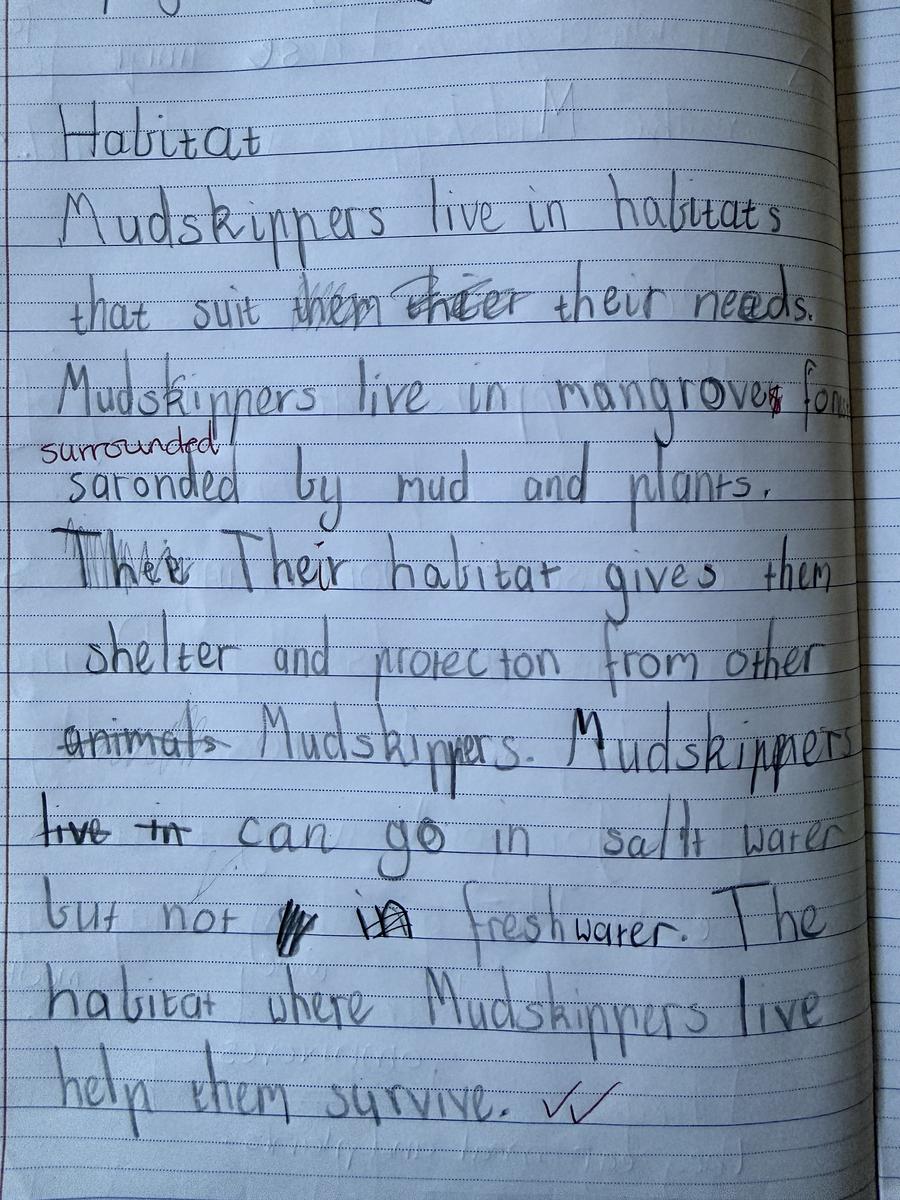 Habitat
Mudskippers live in habitats
that suit them theer their needs.
Mudskippers live in mangrove
surrounded
saronded by mud and plants.
Their habitat gives them
shelter and protecton from other
animals Mudskippers. Mudskippers
live in can go in saltt water
but not in freshwater. The
habitat where Mudskippers live
help them survive.